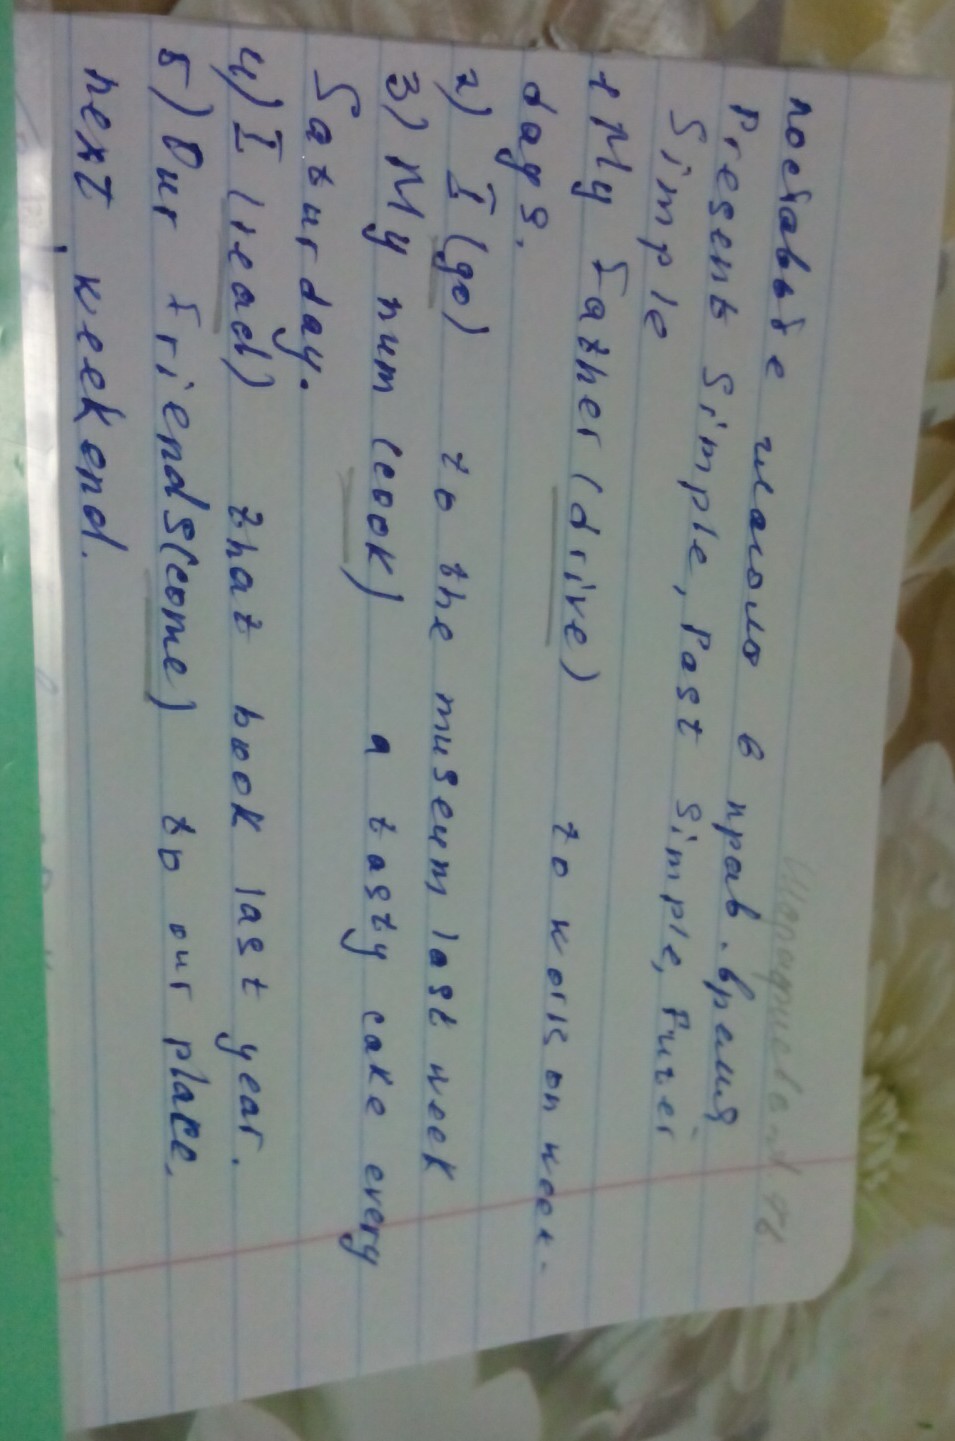 поставьте глаголо в прав. время
Present Simple, Past Simple, Futer
Simple
1 My father (drive) to work on week-
days.
2) I (go) to the museum last week
3) My mum (cook) a tasty cake every
Saturday.
4) I (read) that book last year.
5) Our friends (come) to our place.
next weekend.